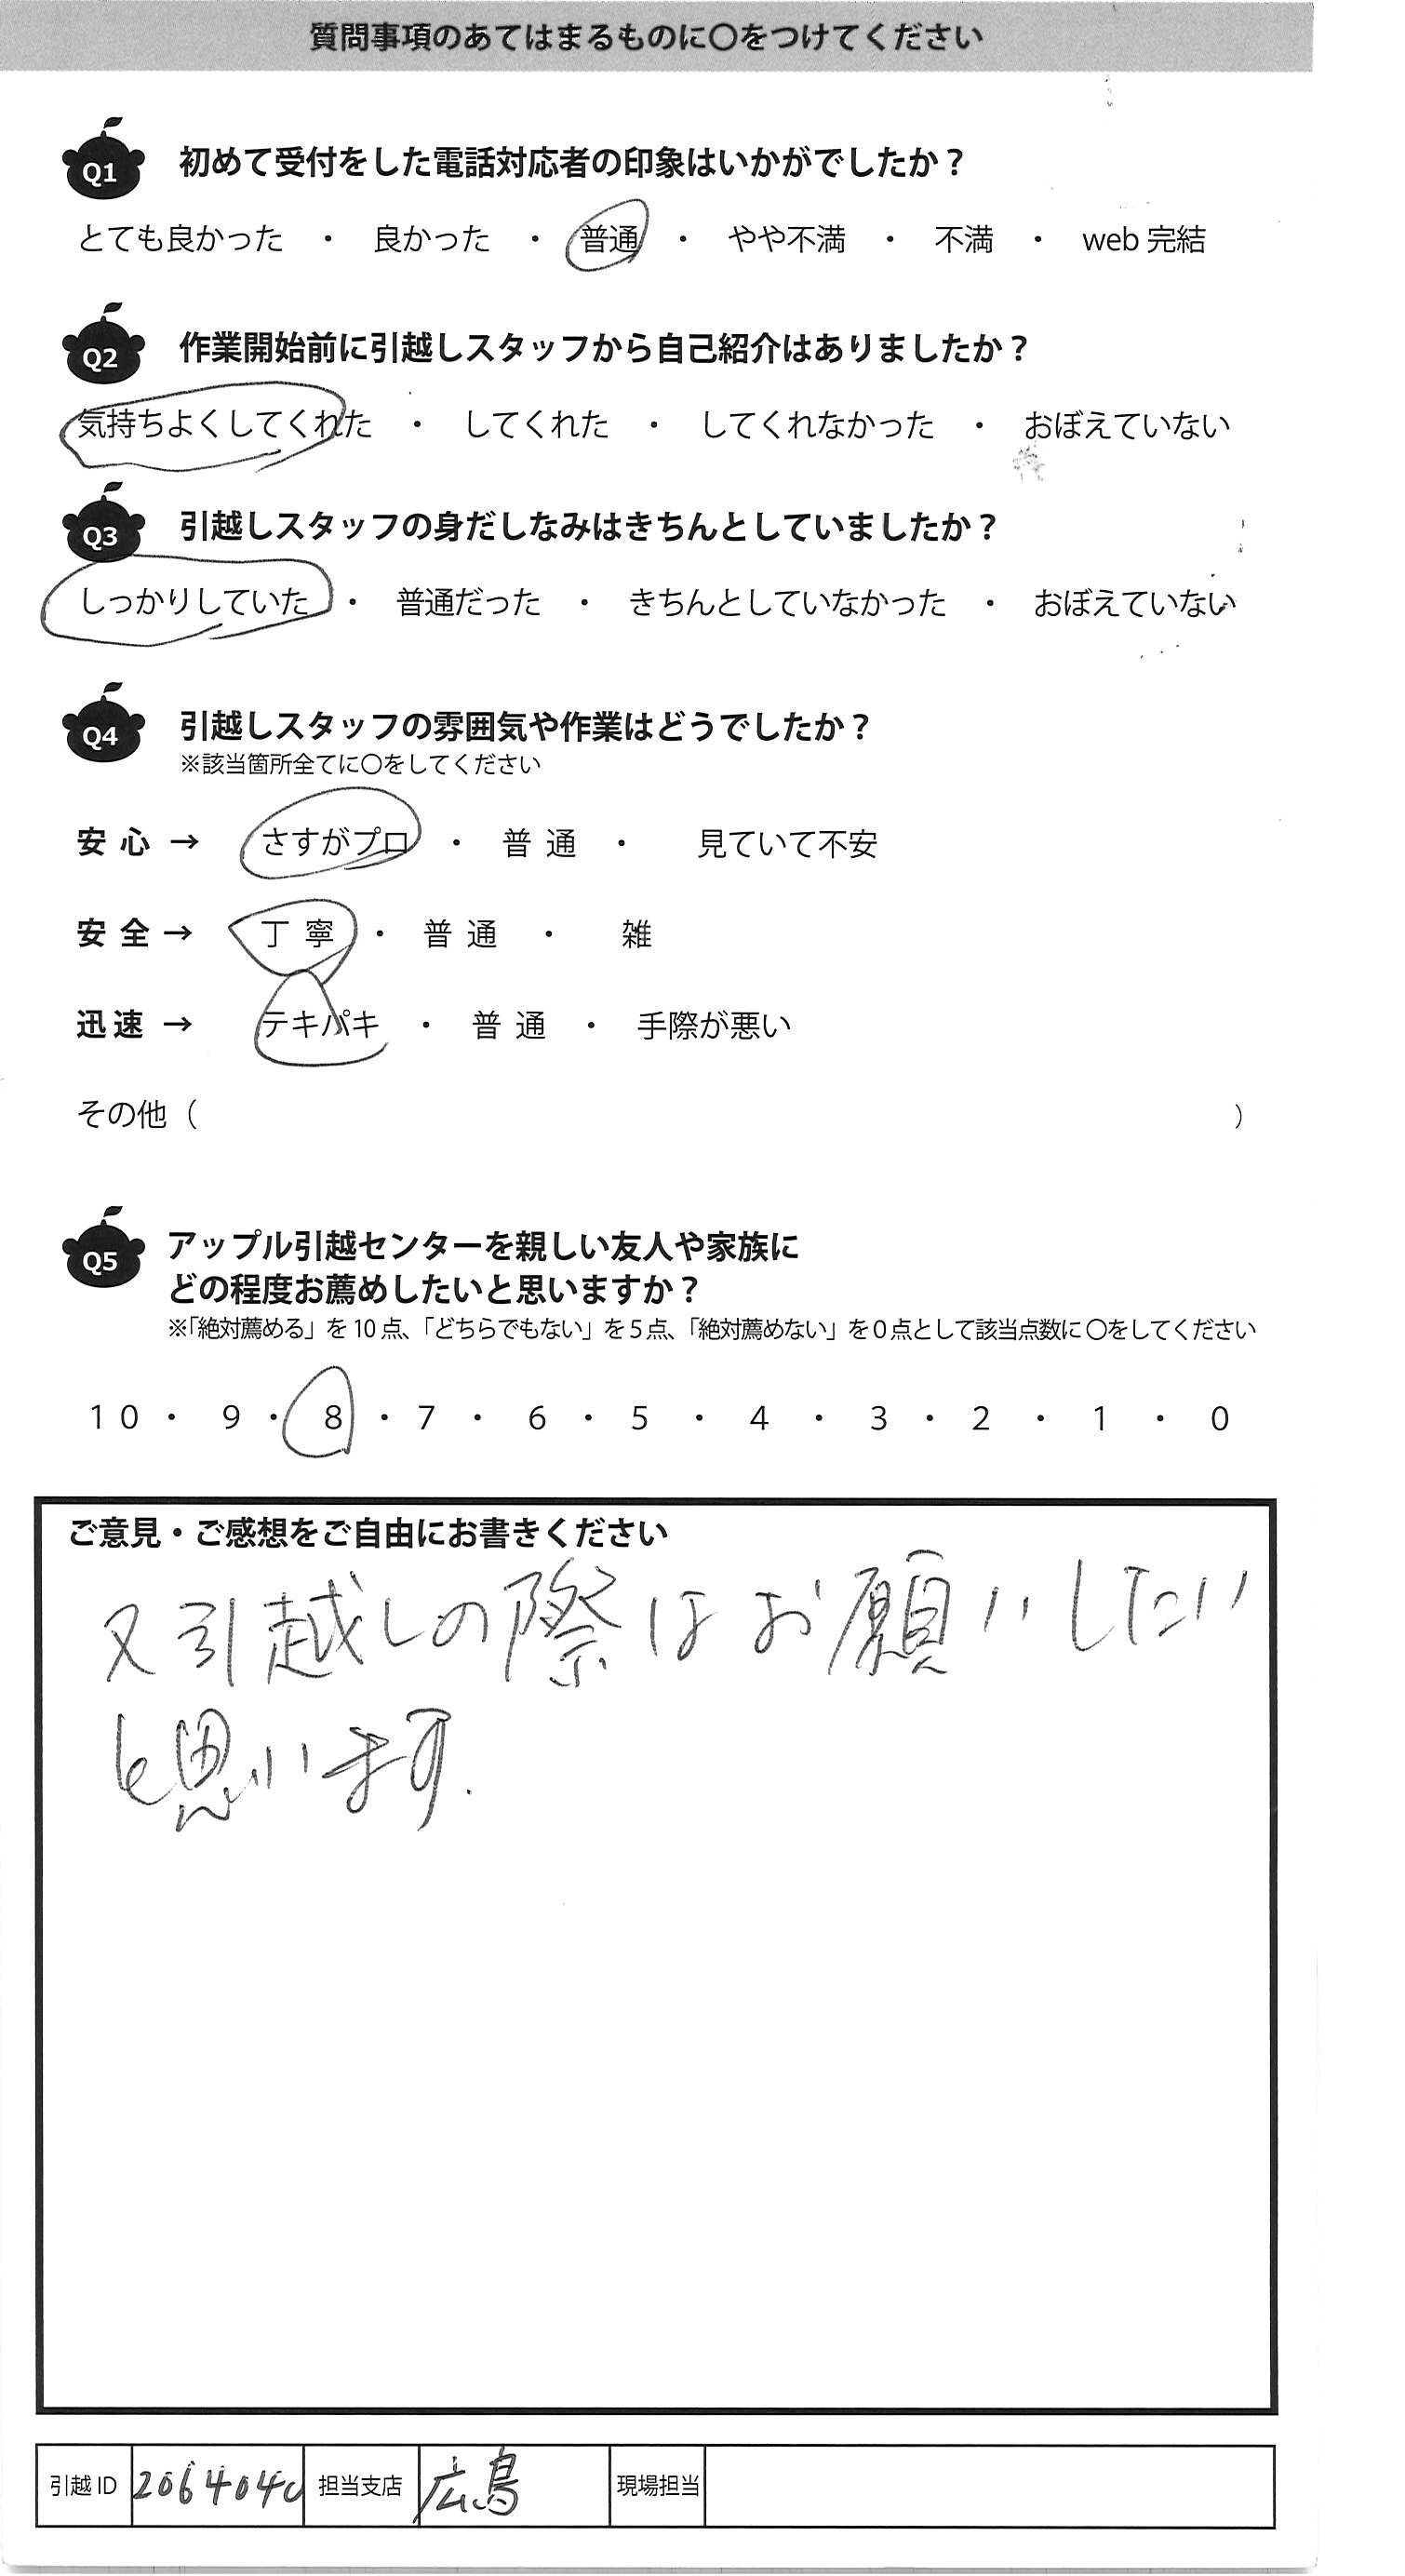 質問事項のあてはまるものに〇をつけてください
Q1 初めて受付をした電話対応者の印象はいかがでしたか？
とても良かった ・ 良かった ・ 普通 ・ やや不満 ・ 不満 ・ web 完結
Q2 作業開始前に引越しスタッフから自己紹介はありましたか？
気持ちよくしてくれた ・ してくれた ・ してくれなかった ・ おぼえていない
Q3 引越しスタッフの身だしなみはきちんとしていましたか？
しっかりしていた ・ 普通だった ・ きちんとしていなかった ・ おぼえていない
Q4 引越しスタッフの雰囲気や作業はどうでしたか？
※該当箇所全てに〇をしてください
安心 → さすがプロ ・ 普通 ・ 見ていて不安
安全 → 丁寧 ・ 普通 ・ 雑
迅速 → テキパキ ・ 普通 ・ 手際が悪い
その他（ ）
Q5 アップル引越センターを親しい友人や家族に
どの程度お薦めしたいと思いますか？
※「絶対薦める」を 10 点、「どちらでもない」を 5 点、「絶対薦めない」を 0 点として該当点数に 〇をしてください
10 ・ 9 ・ 8 ・ 7 ・ 6 ・ 5 ・ 4 ・ 3 ・ 2 ・ 1 ・ 0
ご意見・ご感想をご自由にお書きください
又引越しの際はお願いしたい
と思います.
引越 ID 2064040 担当支店 広島 現場担当